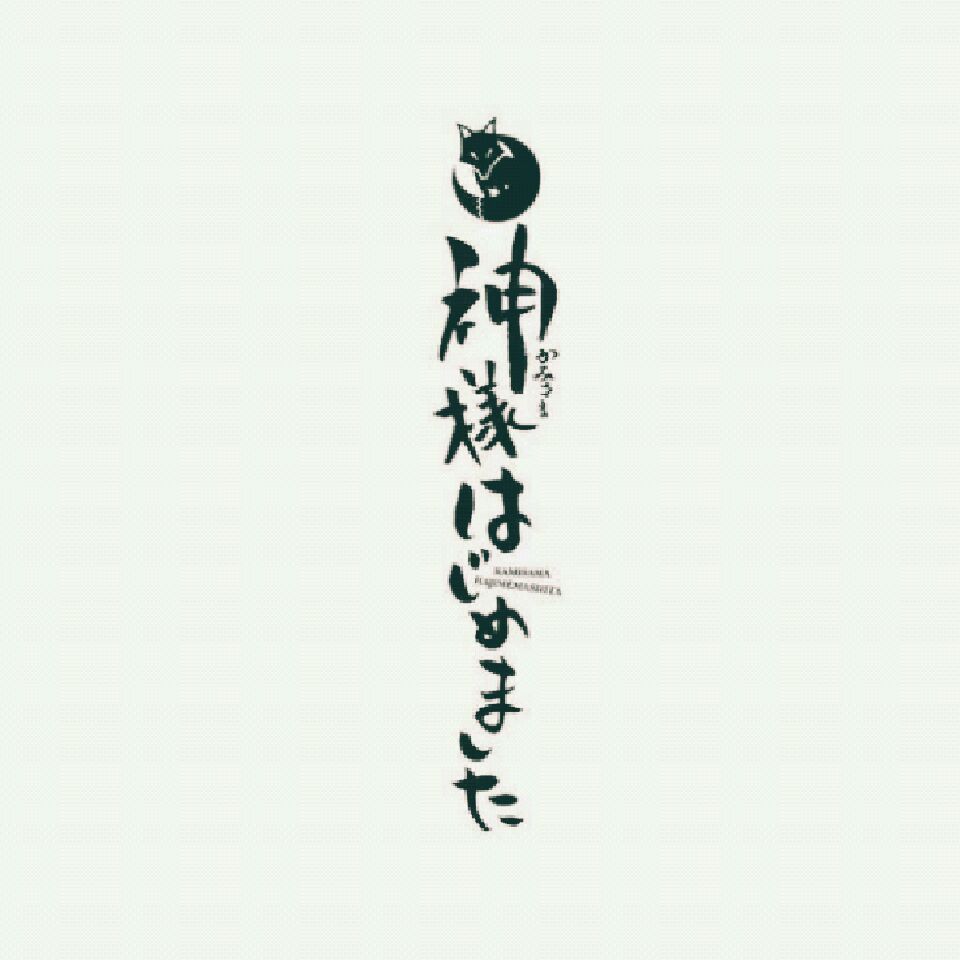 神様はじめました
かみさま
KAMISAMA
HAJIMEMASHITA